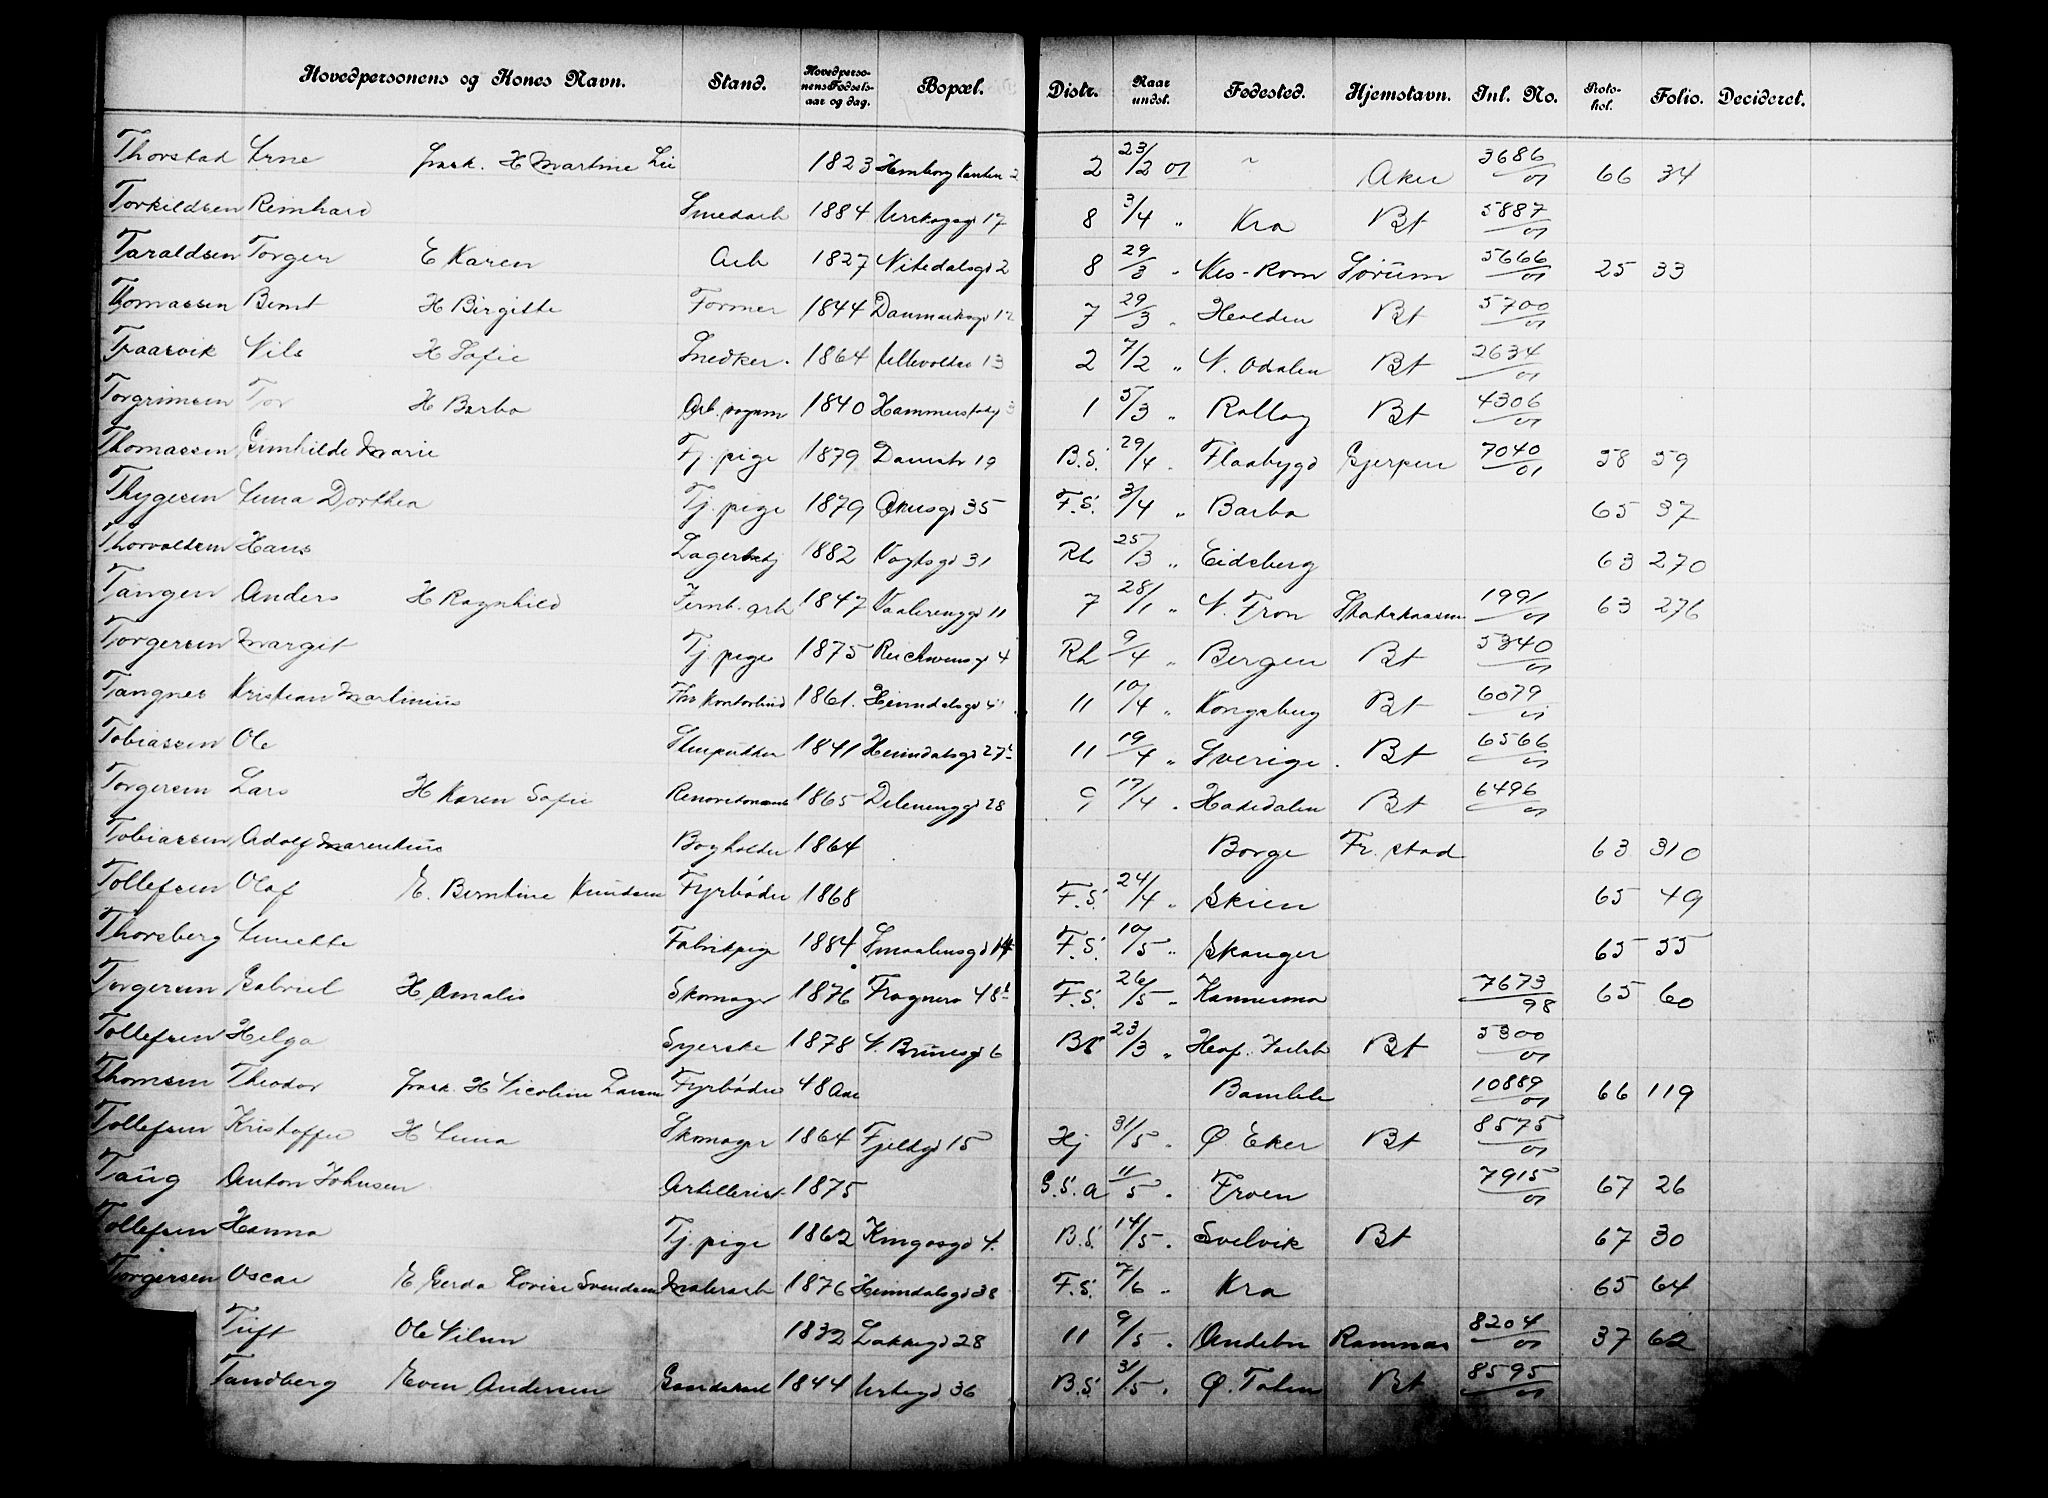 Hovedpersonens og Kones Navn. Stand. Hovedpersonens Fødselsaar og dag. Bopæl. Distr. Naar undst. Fødested. Hjemstavn. Inl. No. Protokol. Folio. Decideret.
Thorstad Arne frask. H Martine Lie 1823 2 23/2 01 " Aker 3686/01 66 34
Torkildsen Reinhard Smedarb 1884 17 8 3/4 " Kra Bt 5887/01
Taraldsen Torger E Karen Arb 1827 Nitedalsgd 2 8 29/3 " Nes-Rom Sørum 5666/01 25 33
Thomassen Bernt H Birgitte Former 1844 Danmarksgd 12 7 29/3 " Holden Bt 5700/01
Traasvik Nils H Sofie Snedker 1864 Ullevoldsv 13 2 7/2 " N. Odalen Bt 2634/01
Torgrimsen Tor H Barbo Arb. 1840 Hammerstadgd 3 1 5/3 " Rollag Bt 4306/01
Thomassen Gunhilde Marie Tj. pige 1879 Daasstr 19 B.S. 29/4 " Flaabygd Gjerpen 7040/01 58 59
Thygesen Anna Dorthea Tj. pige 1879 Akersgd 35 F.S. 3/4 " Barbo 65 37
Thorvaldsen Hans Lagerbetj 1882 Vogtsgd 31 Rh 25/3 " Eidsberg 63 270
Tangen Anders H Ragnhild Jernb. arb 1847 Vaalerenggd 11 7 28/1 " N. Fron 1991/01 63 276
Torgersen Margit Tj. pige 1875 Reichweinsgd 4 Rh 9/4 " Bergen Bt 5340/01
Tangnes Kristian Martinius Fhv kontorbud 1861 Heimdalsgd 11 10/4 " Kongsberg Bt 6079/01
Tobiassen Ole Stenpukker 1841 Heimdalsgd 27 11 19/4 " Sverige Bt 6566/01
Torgersen Lars H Karen Sofie Renovationsarb 1865 Delenenggd 28 9 17/4 " Hadedalen Bt 6496/01
Tobiassen Adolf Marentius Bogholder 1864 Borge Fr. stad 63 310
Tollefsen Olaf E. Berntine Knudsen Fyrbøder 1868 F.S. 24/4 " Skien 65 49
Thorsberg Annette Fabrikpige 1884 Smaalensgd 14 F.S. 10/5 " Skanger 65 55
Torgersen Gabriel H Amalie Skomager 1876 Frognerv 48 F.S. 26/5 " 7673/98 65 60
Tollefsen Helga Syerske 1878 N. Brunsgd 6 Bt 23/3 " Bt 5300/01
Thomsen Theodor frask. H Nicoline Larsen Fyrbøder 48 Aar Bamble 10889/01 66 119
Tollefsen Kristoffer H Anna Skomager 1864 Fjeldgd 15 Hj 31/5 " Ø Eker Bt 8575/01
Taug Anton Johnsen Artillerist 1875 G.S. a 11/5 " Froen 7915/01 67 26
Tollefsen Hanna Tj. pige 1862 Kingosgd 4 B.S. 14/5 " Svelvik Bt 67 30
Torgersen Oscar E Gerda Lovise Svendsen Malerarb 1876 Heimdalsgd 38 F.S. 7/6 " Kra 65 64
Tuft Ole Nilsen 1832 Lakkegd 28 11 9/5 " Andebu Ramnæs 8204/01 37 62
Tandberg Even Andersen Gaardsarb 1844 Urtegd 36 B.S. 31/5 " Ø. Toten Bt 8595/01